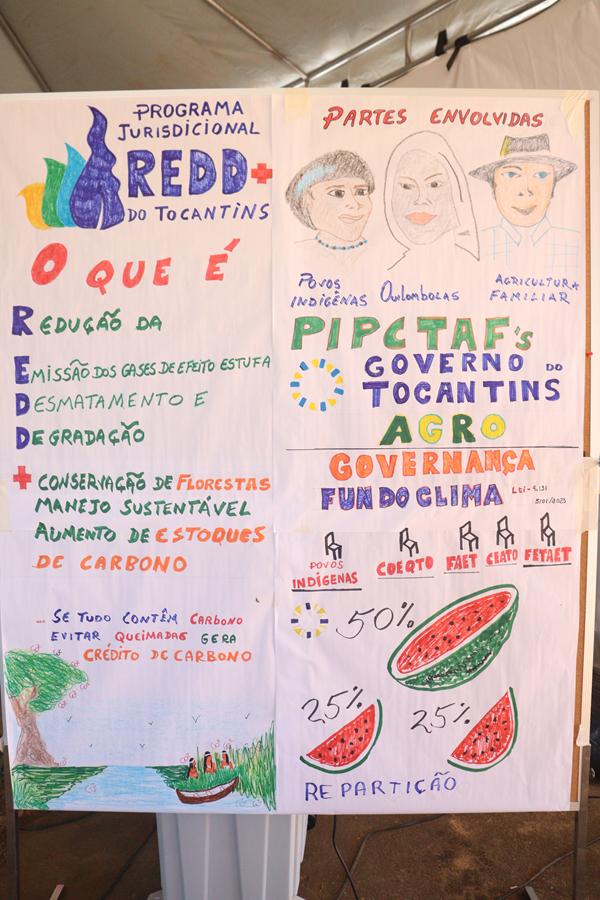 PROGRAMA
JURISDICIONAL
REDD+
DO TOCANTINS
O QUE É
REDUÇÃO DA
EMISSÃO DOS GASES DE EFEITO ESTUFA
DESMATAMENTO E
DEGRADAÇÃO
+ CONSERVAÇÃO DE FLORESTAS
MANEJO SUSTENTÁVEL
AUMENTO DE ESTOQUES
DE CARBONO
... SE TUDO CONTÊM CARBONO
EVITAR QUEIMADAS GERA
CRÉDITO DE CARBONO
PARTES ENVOLVIDAS
POVOS INDÍGENAS
Quilombolas
AGRICULTURA FAMILIAR
PIPCTAF's
GOVERNO DO
TOCANTINS
AGRO
GOVERNANÇA
FUNDO CLIMA
POVOS INDÍGENAS
COEQTO
FAET
CEATO
FETAET
50%
25% 25%
REPARTIÇÃO